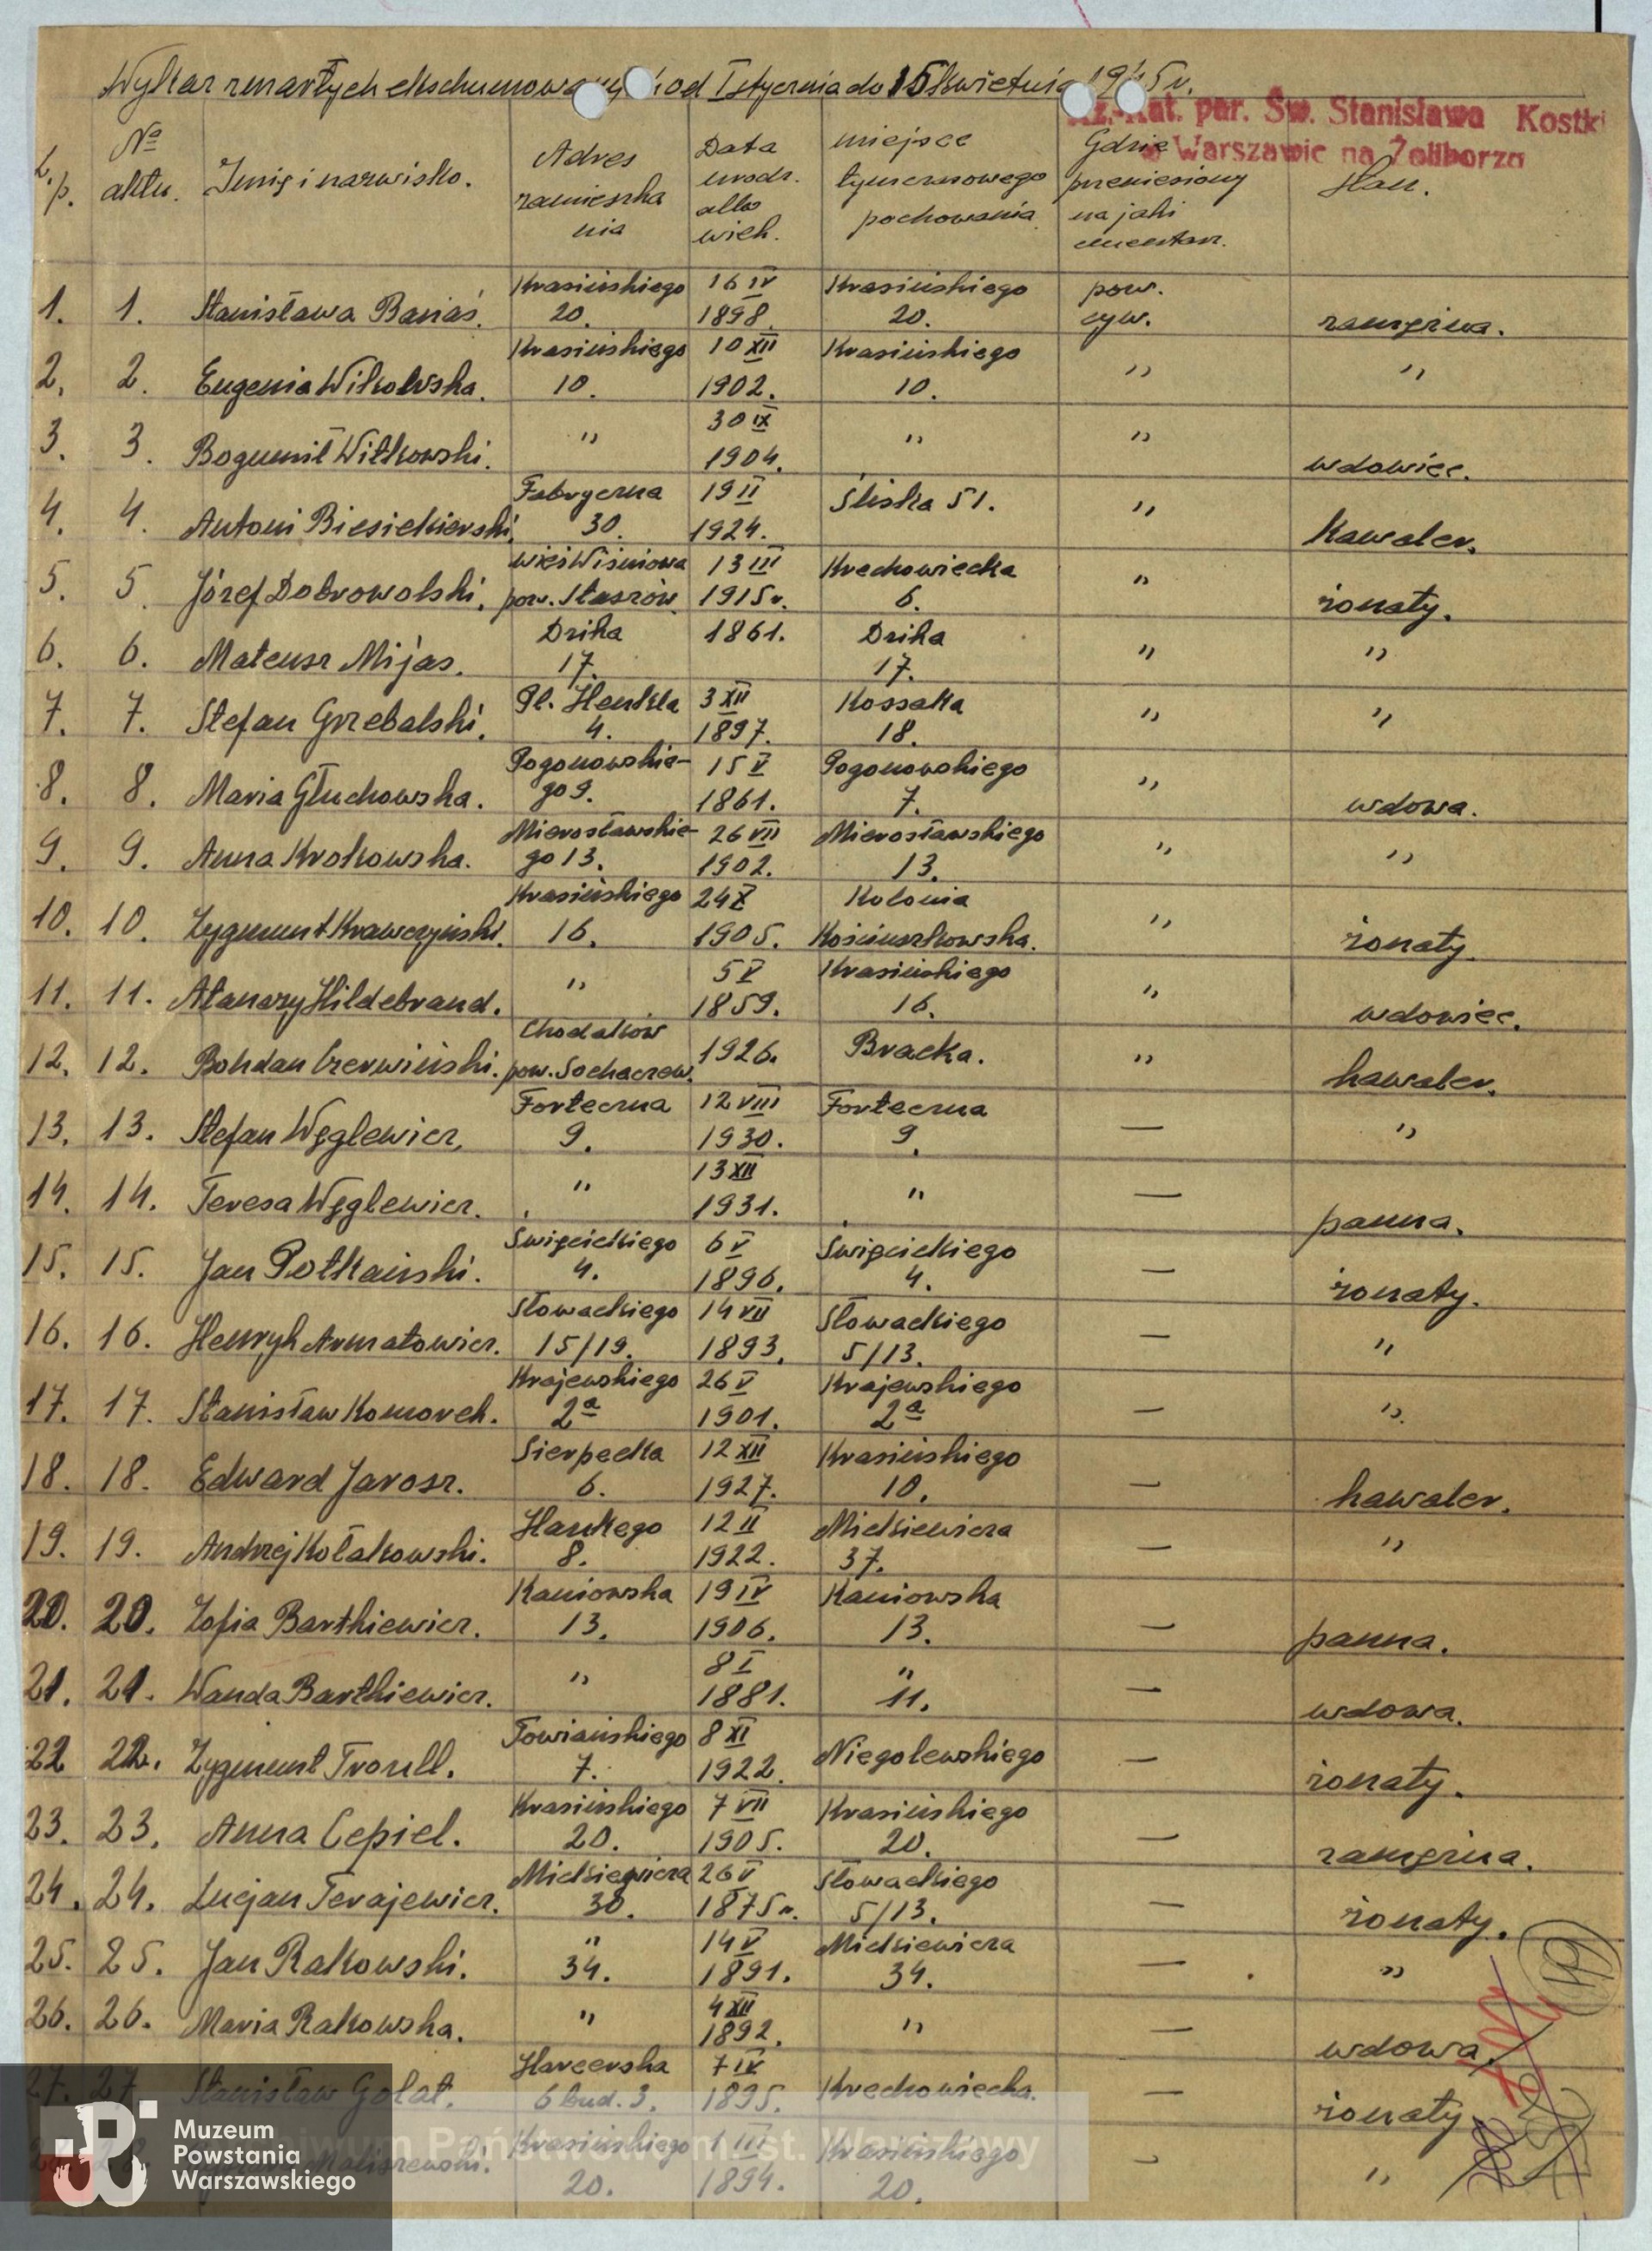 Wykaz zmarłych ekschumowanych od 1 stycznia do 15 kwietnia 1945 r.
Rz.-Kat. par. Św. Stanisława Kostki
w Warszawie na Żoliborzu
L.p. | № aktu. | Imię i nazwisko. | Adres zamieszkania | Data urodz. albo wiek. | miejsce tymczasowego pochowania | Gdzie przeniesiony na jaki cmentarz. | Stan.
1. | 1. | Stanisława Banaś. | Krasińskiego 20. | 16 IV 1898. | Krasińskiego 20. | pow. cyw. | zamężna.
2. | 2. | Eugenia Witkowska. | Krasińskiego 10. | 10 XII 1902. | Krasińskiego 10. | " | "
3. | 3. | Bogumił Witkowski. | " | 30 IX 1904. | " | " | wdowiec.
4. | 4. | Antoni Biesiekierski. | Fabryczna 30. | 19 II 1924. | Śliska 51. | " | kawaler.
5. | 5. | Józef Dobrowolski. | wieś Wiśniowa pow. Staszów. | 13 III 1915 r. | Krechowiecka 6. | " | żonaty.
6. | 6. | Mateusz Mijas. | Dzika 17. | 1861. | Dzika 17. | " | "
7. | 7. | Stefan Grzebalski. | Pl. Henkla 4. | 3 XII 1897. | Kossaka 18. | " | "
8. | 8. | Maria Głuchowska. | Pogonowskie-go 9. | 15 V 1861. | Pogonowskiego 7. | " | wdowa.
9. | 9. | Anna Krokowska. | Mierosławskie-go 13. | 26 VII 1902. | Mierosławskiego 13. | " | "
10. | 10. | Zygmunt Krawczyński. | Krasińskiego 16. | 24 X 1905. | Kolonia Kościuszkowska. | " | żonaty
11. | 11. | Atanazy Hildebrand. | " | 5 V 1859. | Krasińskiego 16. | " | wdowiec.
12. | 12. | Bohdan Czerwiński. | Chodaków pow. Sochaczew. | 1926. | Bracka. | " | kawaler.
13. | 13. | Stefan Węglewicz. | Forteczna 9. | 12 VIII 1930. | Forteczna 9. | — | "
14. | 14. | Teresa Węglewicz. | " | 13 XII 1931. | " | — | panna.
15. | 15. | Jan Potkański. | Święcickiego 4. | 6 V 1896. | Święcickiego 4. | — | żonaty.
16. | 16. | Henryk Armatowicz. | Słowackiego 15/19. | 14 VII 1893. | Słowackiego 5/13. | — | "
17. | 17. | Stanisław Komorek. | Krajewskiego 2a | 26 V 1901. | Krajewskiego 2a | — | "
18. | 18. | Edward Jarosz. | Sierpecka 6. | 12 XII 1927. | Krasińskiego 10. | — | kawaler.
19. | 19. | Andrzej Kołakowski. | Haukego 8. | 12 II 1922. | Mickiewicza 37. | — | "
20. | 20. | Zofia Bartkiewicz. | Kaniowska 13. | 19 IV 1906. | Kaniowska 13. | — | panna.
21. | 21. | Wanda Bartkiewicz. | " | 8 I 1881. | " 11. | — | wdowa.
22 | 22. | Zygmunt Trszull. | Towiańskiego 7. | 8 XI 1922. | Niegolewskiego | — | żonaty.
23. | 23. | Anna Cepiel. | Krasińskiego 20. | 7 VII 1905. | Krasińskiego 20. | — | zamężna.
24. | 24. | Lucjan Terajewicz. | Mickiewicza 30. | 26 V 1875 r. | Słowackiego 5/13. | — | żonaty.
25. | 25. | Jan Rakowski. | " 34. | 14 V 1891. | Mickiewicza 34. | — | "
26. | 26. | Maria Rakowska. | " | 4 XII 1892. | " | — | wdowa.
27. | 27. | Stanisław Gołat. | Harcerska 6 bud. 3. | 7 IV 1895. | Krechowiecka. | — | żonaty.
28. | Maliszewski. | Krasińskiego 20. | 1 III 1894. | Krasińskiego 20. | — | "
49
Muzeum
Powstania
Warszawskiego
Archiwum Państwowe m. st. Warszawy